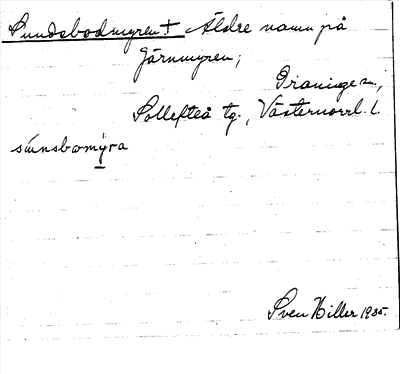 Sundsbodmyren † Äldre namn på
Järnmyren;
Graninge sn,
Sollefteå tg., Västernorrl. l.
sùnsbomỳra
Sven Hiller 1935.